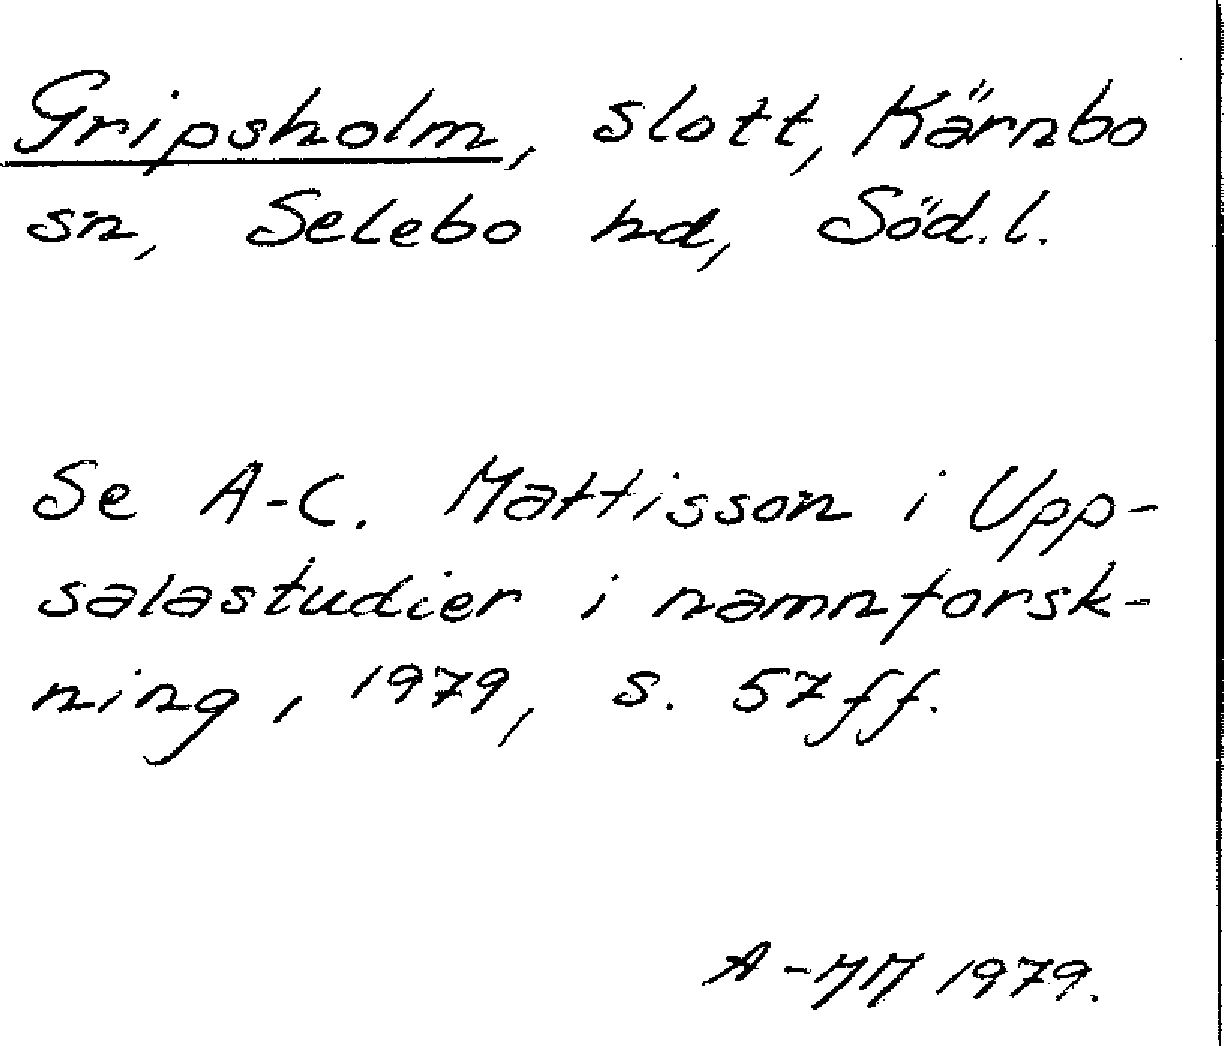 Gripsholm, slott, Kärnbo
sn, Selebo hd, Söd.l.
Se A-C. Mattisson i Upp-
salastudier i namnforsk-
ning, 1979, s. 57ff.
1979.